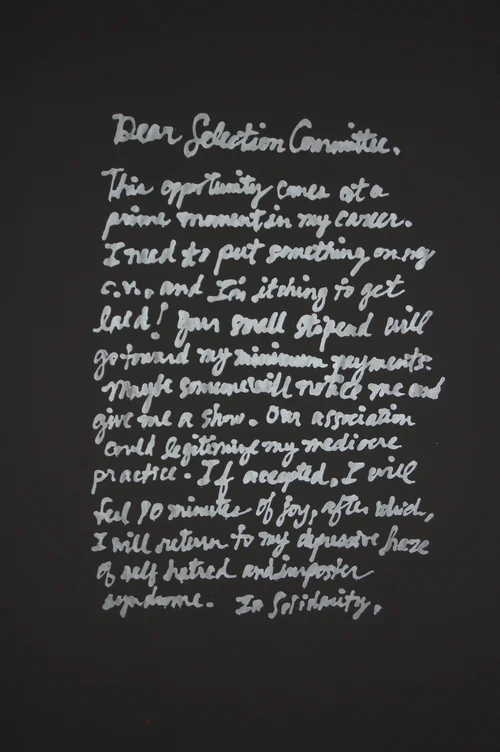 Dear Selection Committee,
This opportunity comes at a
prime moment in my career.
I need to put something on my
c.v., and I'm itching to get
laid! Your small stipend will
go toward my minimum payments.
Maybe someone will notice me and
give me a show. Our association
could legitimize my mediocre
practice. If accepted, I will
feel 90 minutes of joy, after which,
I will return to my depressive haze
of self hatred and imposter
syndrome. In Solidarity,